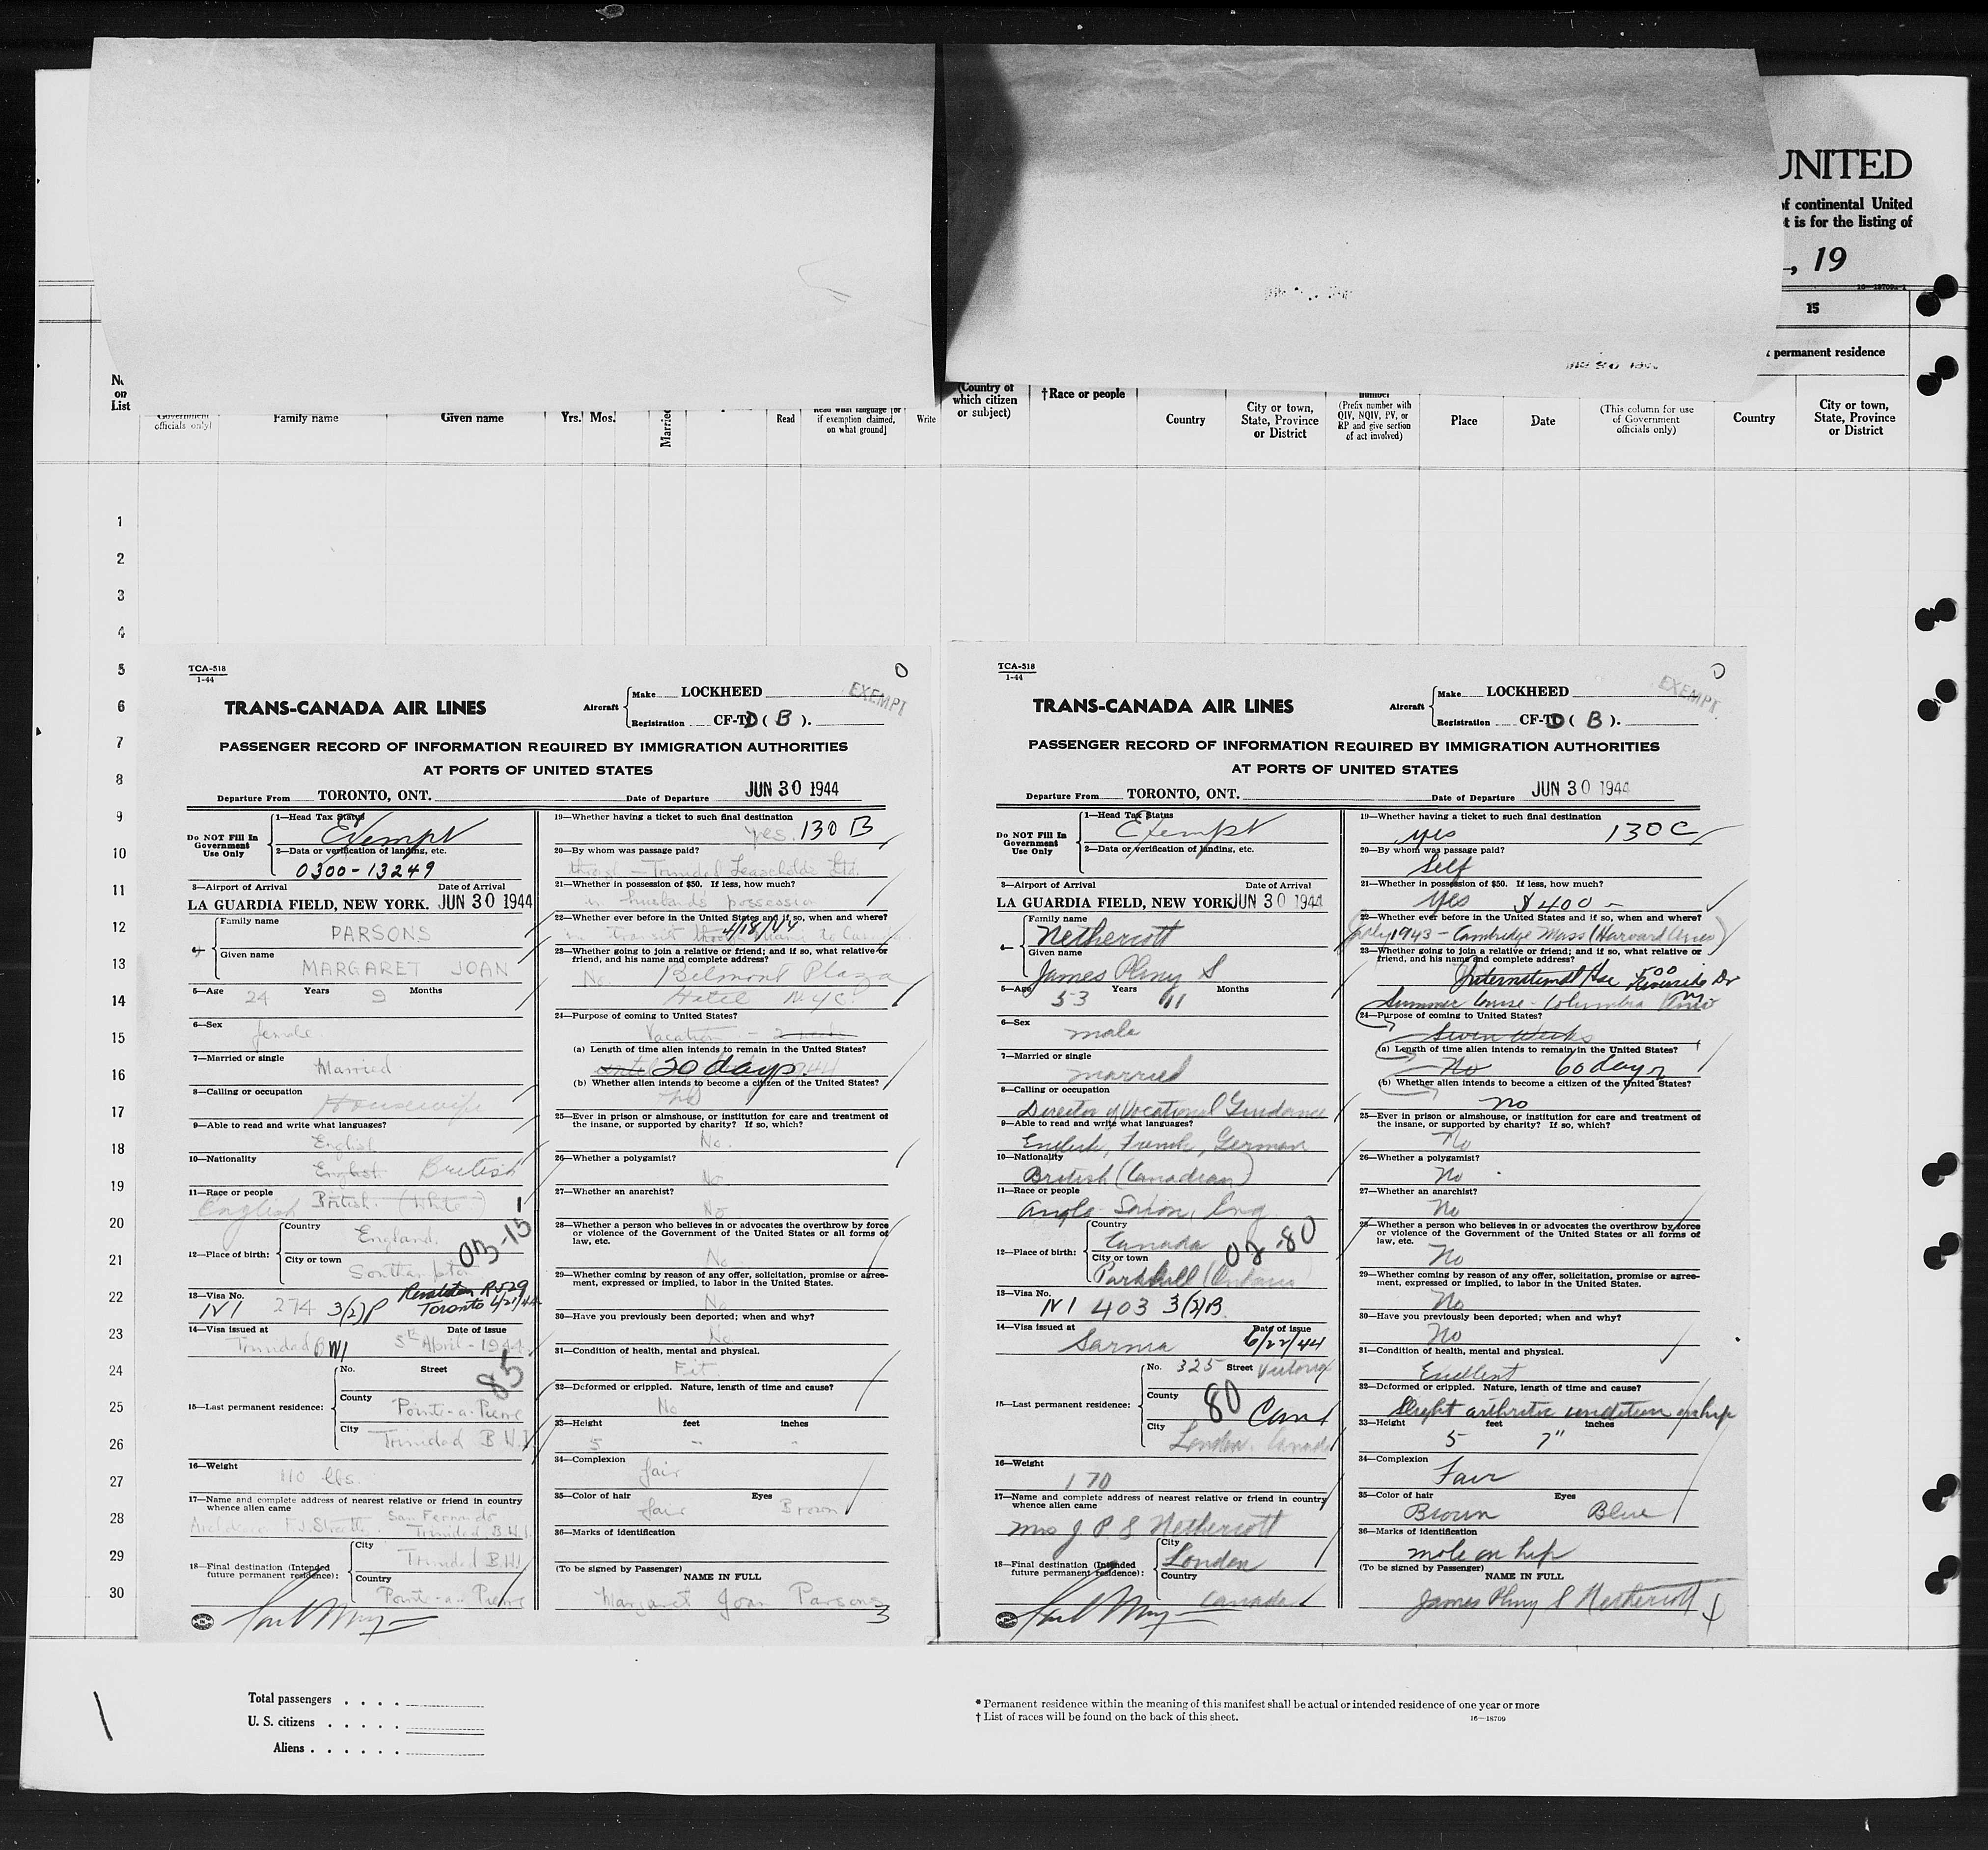 UNITED
of continental United
t is for the listing of
, 19
16—18709a-1
15
permanent residence
No.
on
List
Government
officials only)
Family name
Given name
Yrs.
Mos.
Married
Read
Read what language [or
if exemption claimed,
on what ground]
Write
(Country of
which citizen
or subject)
†Race or people
Country
City or town,
State, Province
or District
number
(Prefix number with
QIV, NQIV, PV, or
RP and give section
of act involved)
Place
Date
(This column for use
of Government
officials only)
Country
City or town,
State, Province
or District
1
2
3
4
5
6
7
8
9
10
11
12
13
14
15
16
17
18
19
20
21
22
23
24
25
26
27
28
29
30
TCA-518
1-44
0
EXEMPT
TRANS-CANADA AIR LINES
Aircraft
Make LOCKHEED
Registration CF-TD ( B ).
PASSENGER RECORD OF INFORMATION REQUIRED BY IMMIGRATION AUTHORITIES
AT PORTS OF UNITED STATES
Departure From TORONTO, ONT. Date of Departure JUN 30 1944
Do NOT Fill In
Government
Use Only
1—Head Tax Status
Exempt
2—Data or verification of landing, etc.
0300-13249
3—Airport of Arrival Date of Arrival
LA GUARDIA FIELD, NEW YORK. JUN 30 1944
4—
Family name
PARSONS
Given name
MARGARET JOAN
5—Age 24 Years 9 Months
6—Sex
female
7—Married or single
Married
8—Calling or occupation
Housewife
9—Able to read and write what languages?
English
10—Nationality
English British
11—Race or people
English British (White)
12—Place of birth:
Country
England
City or town
Southampton
03-15
13—Visa No.
IV1 274 3(2)P
R529
Toronto 6/21/44
14—Visa issued at Date of issue
Trinidad BWI 5th April - 1944
85
15—Last permanent residence:
No. Street
County
Pointe-a-Pierre
City
Trinidad B.W.I.
16—Weight
110 lbs.
17—Name and complete address of nearest relative or friend in country
whence alien came
San Fernando
Trinidad B.W.I.
18—Final destination (Intended
future permanent residence):
City
Trinidad BWI
Country
Pointe-a-Pierre
19—Whether having a ticket to such final destination
yes. 130 B
20—By whom was passage paid?
Trinidad Leaseholds Ltd.
21—Whether in possession of $50. If less, how much?
in husbands possession
22—Whether ever before in the United States and if so, when and where?
in transit 4/18/44 Miami to
23—Whether going to join a relative or friend; and if so, what relative or
friend, and his name and complete address?
No. Belmont Plaza
Hotel NYC.
24—Purpose of coming to United States?
Vacation - 2 weeks
(a) Length of time alien intends to remain in the United States?
20 days.
(b) Whether alien intends to become a citizen of the United States?
No
25—Ever in prison or almshouse, or institution for care and treatment of
the insane, or supported by charity? If so, which?
No.
26—Whether a polygamist?
No
27—Whether an anarchist?
No
28—Whether a person who believes in or advocates the overthrow by force
or violence of the Government of the United States or all forms of
law, etc.
No
29—Whether coming by reason of any offer, solicitation, promise or agree-
ment, expressed or implied, to labor in the United States.
No
30—Have you previously been deported; when and why?
No
31—Condition of health, mental and physical.
Fit.
32—Deformed or crippled. Nature, length of time and cause?
No
33—Height feet inches
5 - -
34—Complexion
fair
35—Color of hair Eyes
fair Brown
36—Marks of identification
(To be signed by Passenger)
NAME IN FULL
Margaret Joan Parsons
3
TCA-518
1-44
0
EXEMPT
TRANS-CANADA AIR LINES
Aircraft
Make LOCKHEED
Registration CF-TD ( B ).
PASSENGER RECORD OF INFORMATION REQUIRED BY IMMIGRATION AUTHORITIES
AT PORTS OF UNITED STATES
Departure From TORONTO, ONT. Date of Departure JUN 30 1944
Do NOT Fill In
Government
Use Only
1—Head Tax Status
Exempt
2—Data or verification of landing, etc.
3—Airport of Arrival Date of Arrival
LA GUARDIA FIELD, NEW YORK JUN 30 1944
4—
Family name
Nethercott
Given name
James Pliny S
5—Age 53 Years 11 Months
6—Sex
male
7—Married or single
married
8—Calling or occupation
Director of Vocational Guidance
9—Able to read and write what languages?
English, French, German
10—Nationality
British (Canadian)
11—Race or people
Anglo-Saxon, Eng
12—Place of birth:
Country
Canada
City or town
Parkhill (Ontario)
02-80
13—Visa No.
IV1 403 3(2)B
14—Visa issued at Date of issue
Sarnia 6/22/44
15—Last permanent residence:
No. 325 Street Victoria
County
80 Can
City
London, Canada
16—Weight
170
17—Name and complete address of nearest relative or friend in country
whence alien came
Mrs J P S Nethercott
18—Final destination (Intended
future permanent residence):
City
London
Country
Canada
19—Whether having a ticket to such final destination
yes 130 C
20—By whom was passage paid?
Self
21—Whether in possession of $50. If less, how much?
Yes $400 -
22—Whether ever before in the United States and if so, when and where?
July 1943 - Cambridge Mass (Harvard Univ)
23—Whether going to join a relative or friend; and if so, what relative or
friend, and his name and complete address?
International Hse 500 Riverside Dr
NY
Summer Course - Columbia Univ
24—Purpose of coming to United States?
Seven Weeks
(a) Length of time alien intends to remain in the United States?
No 60 days
(b) Whether alien intends to become a citizen of the United States?
no
25—Ever in prison or almshouse, or institution for care and treatment of
the insane, or supported by charity? If so, which?
No
26—Whether a polygamist?
No
27—Whether an anarchist?
No
28—Whether a person who believes in or advocates the overthrow by force
or violence of the Government of the United States or all forms of
law, etc.
No
29—Whether coming by reason of any offer, solicitation, promise or agree-
ment, expressed or implied, to labor in the United States.
No
30—Have you previously been deported; when and why?
No
31—Condition of health, mental and physical.
Excellent
32—Deformed or crippled. Nature, length of time and cause?
Slight arthritic condition of hip
33—Height feet inches
5 7"
34—Complexion
Fair
35—Color of hair Eyes
Brown Blue
36—Marks of identification
mole on hip
(To be signed by Passenger)
NAME IN FULL
James Pliny S Nethercott
Total passengers . . . .
U. S. citizens . . . . .
Aliens . . . . . .
* Permanent residence within the meaning of this manifest shall be actual or intended residence of one year or more
† List of races will be found on the back of this sheet.
16—18709